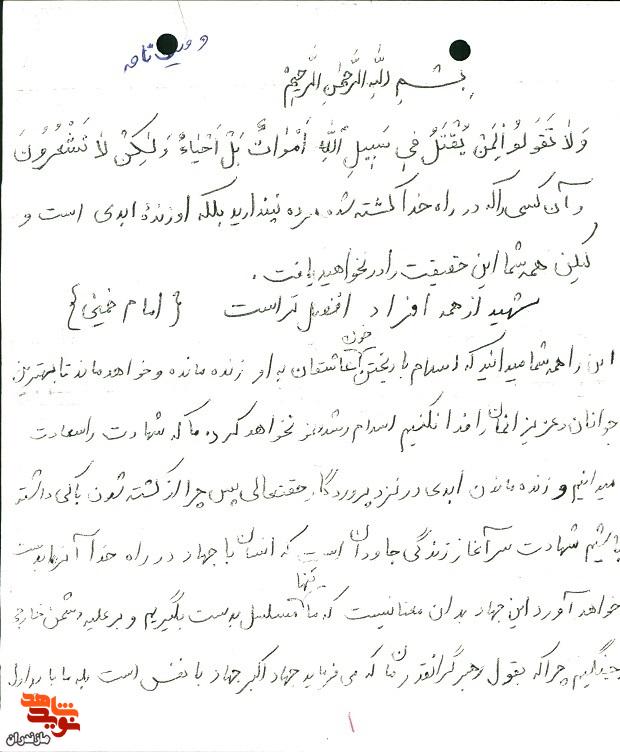 وصیت نامه
بِسْمِ اللَّهِ الرَّحْمٰنِ الرَّحِیْمْ
وَلاٰ تَقُولُوا لِمَنْ یُقْتَلُ فِی سَبِیلِ اللَّهِ أَمْوٰاتٌ بَلْ أَحْیٰاءٌ وَلٰکِنْ لاٰ تَشْعُرُونَ
و آن کسی را که در راه خدا کشته شده مرده نپندارید بلکه او زندهٔ ابدی است و
لیکن همه شما این حقیقت را درنخواهید یافت .
شهید از همه افراد افضل تر است { امام خمینی }
این را همه شما میدانید که اسلام با ریختن خون عاشقان به او زنده مانده و خواهد ماند تا بهترین
جوانان و عزیز انمان را فدا نکنیم اسلام رشد نیز نخواهد کرد ما که شهادت را سعادت
میدانیم و زنده ماندن ابدی در نزد پروردگار حقتعالی پس چرا از کشته شدن باکی داشته
باشیم شهادت سرآغاز زندگی جاودان است که انسان با جهاد در راه خدا آنرا بدست
خواهد آورد این جهاد بدان معنا نیست که ما تنها مسلسل بدست بگیریم و بر علیه دشمن خارجی
بجنگیم چرا که بقول رهبر گرانقدرمان که می فرماید جهاد اکبر جهاد با نفس است بله ما باید اول
۱
شاهد
نوید
مازندران